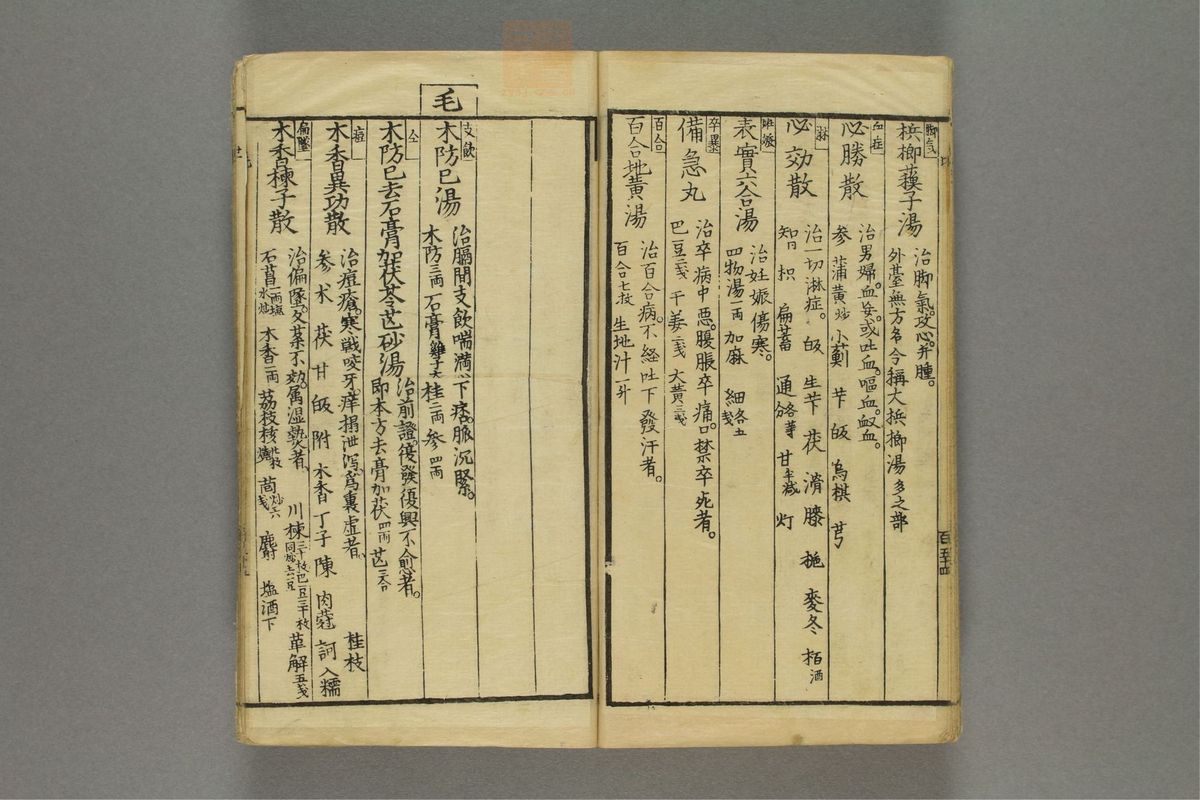 脚氣
檳榔蘓子湯
治脚氣。攻心。并腫。
外臺無方名今稱大檳榔湯多之部
血症
必勝散
治男婦。血妄。或吐血。嘔血。衂血。
参 蒲黄炒 小薊 芐 皈 烏梅 芎
淋
必効散
治一切淋症。 皈 生芐 茯 滑 膝 梔 麥冬 栢酒
知 枳 扁蓄 通各等分 甘半减 灯
斑發
表實六合湯
治妊娠傷寒。
四物湯一両 加麻 細各五戔
卒暴
備急丸
治卒病中悪。腹脹卒痛。口禁卒死者。
巴豆二戔 干姜二戔 大黄三戔
百合
百合地黄湯
治百合病。不経吐下發汗者。
百合七枚 生地汁一升
百五十四
毛
支飲
木防已湯
治膈間支飲喘満。心下痞。脈沉緊。
木防三両 石膏雞子大 桂二両 参四両
仝
木防已去石膏加茯苓芒砂湯
治前證。復發復興不愈者。
即本方去膏加茯四両 芒三合
痘
木香異功散
治痘瘡。寒戦咬牙。痒搨泄瀉。為裏虚者。 桂枝
参 术 茯 甘 皈 附 木香 丁子 陳 肉蔲 訶 入糯
扁墜
木香楝子散
治偏墜。久葉不効。属湿熱者。 川楝三十枚巴豆三十枚同炒去豆 萆解五戔
石菖一両塩水炒 木香一両 荔枝核 茴炒六戔 麝 塩酒下